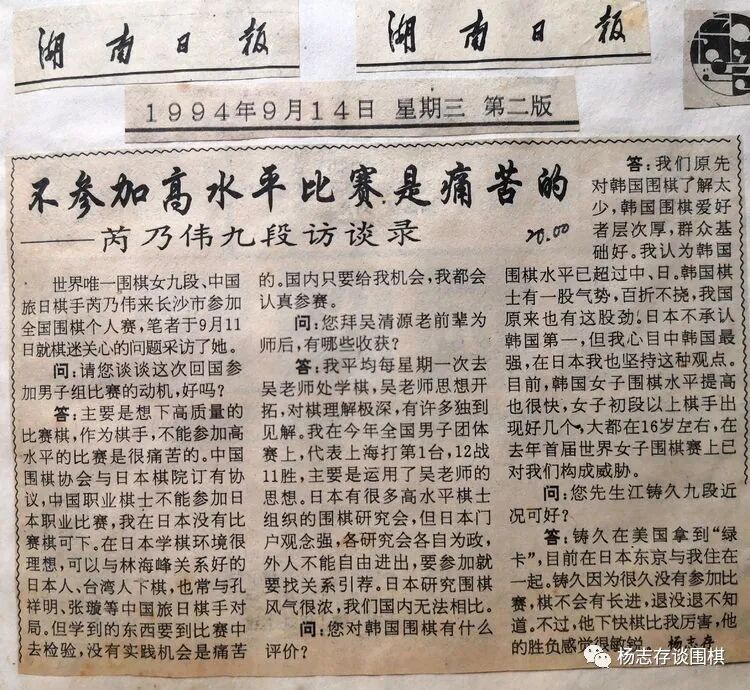 湖南日报
湖南日报
1994年9月14日 星期三 第二版
不参加高水平比赛是痛苦的
——芮乃伟九段访谈录
20.00
世界唯一围棋女九段、中国
旅日棋手芮乃伟来长沙市参加
全国围棋个人赛,笔者于9月11
日就棋迷关心的问题采访了她。
问:请您谈谈这次回国参
加男子组比赛的动机,好吗?
答:主要是想下高质量的
比赛棋,作为棋手,不能参加高
水平的比赛是很痛苦的。中国
围棋协会与日本棋院订有协
议,中国职业棋士不能参加日
本职业比赛,我在日本没有比
赛棋可下。在日本学棋环境很
理想,可以与林海峰关系好的
日本人、台湾人下棋,也常与孔
祥明、张璇等中国旅日棋手对
局。但学到的东西要到比赛中
去检验,没有实践机会是痛苦
的。国内只要给我机会,我都会
认真参赛。
问:您拜吴清源老前辈为
师后,有哪些收获?
答:我平均每星期一次去
吴老师处学棋,吴老师思想开
拓,对棋理解极深,有许多独到
见解。我在今年全国男子团体
赛上,代表上海打第1台,12战
11胜,主要是运用了吴老师的
思想。日本有很多高水平棋士
组织的围棋研究会,但日本门
户观念强,各研究会各自为政,
外人不能自由进出,要参加就
要找关系引荐。日本研究围棋
风气很浓,我们国内无法相比。
问:您对韩国围棋有什么
评价?
答:我们原先
对韩国围棋了解太
少,韩国围棋爱好
者层次厚,群众基
础好。我认为韩国
围棋水平已超过中、日。韩国棋
士有一股气势,百折不挠,我国
原来也有这股劲。日本不承认
韩国第一,但我心目中韩国最
强,在日本我也坚持这种观点。
目前,韩国女子围棋水平提高
也很快,女子初段以上棋手出
现好几个,大都在16岁左右,在
去年首届世界女子围棋赛上已
对我们构成威胁。
问:您先生江铸久九段近
况可好?
答:铸久在美国拿到“绿
卡”,目前在日本东京与我住在
一起。铸久因为很久没有参加比
赛,棋不会有长进,退没退不知
道。不过,他下快棋比我厉害,他
的胜负感觉很敏锐。 杨志存
杨志存谈围棋